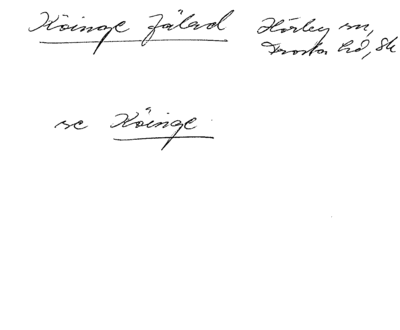 Köinge fälad Hörby sn,
Frosta hd, Sk
se Köinge